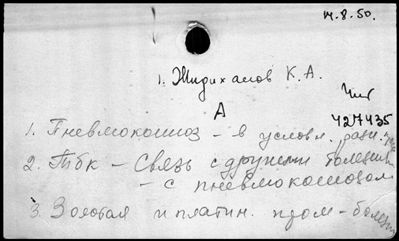 14.8.50.
1. Жидиханов К.А.
А
427435
1. Пневмокониоз - в услов. разн.
2. Тбк - связь с другими болезнями
- с пневмокониозом
3. Золотая и платин. пром - болезни